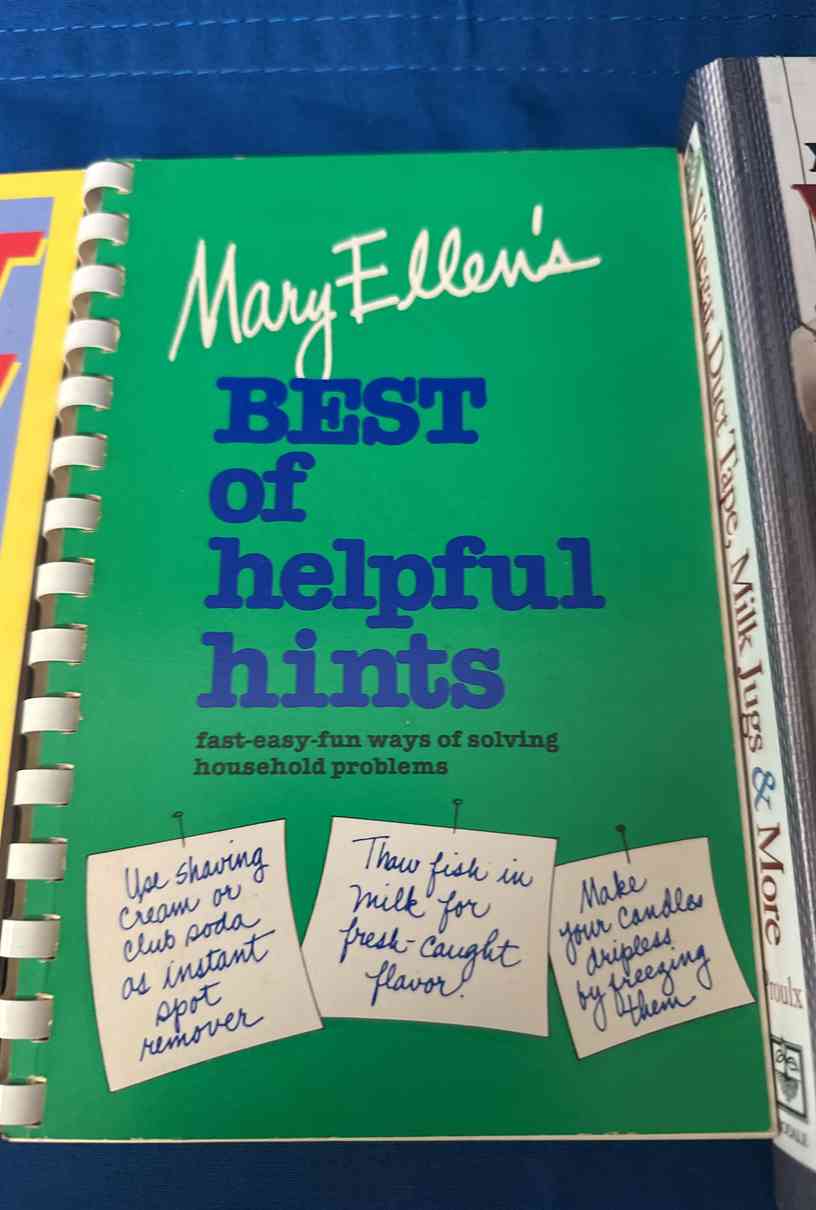 Mary Ellen's
BEST
of
helpful
hints
fast-easy-fun ways of solving
household problems
Use shaving
cream or
club soda
as instant
spot
remover
Thaw fish in
milk for
fresh-caught
flavor!
Make
your candles
dripless
by freezing
them
Vinegar, Duct Tape, Milk Jugs & More